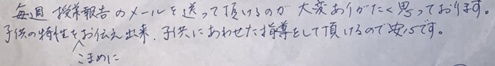 毎週 授業報告のメールを送って頂けるのが 大変ありがたく思っております。
子供の特性をお伝え出来、子供にあわせた指導をして頂けるので安心です。
こまめに